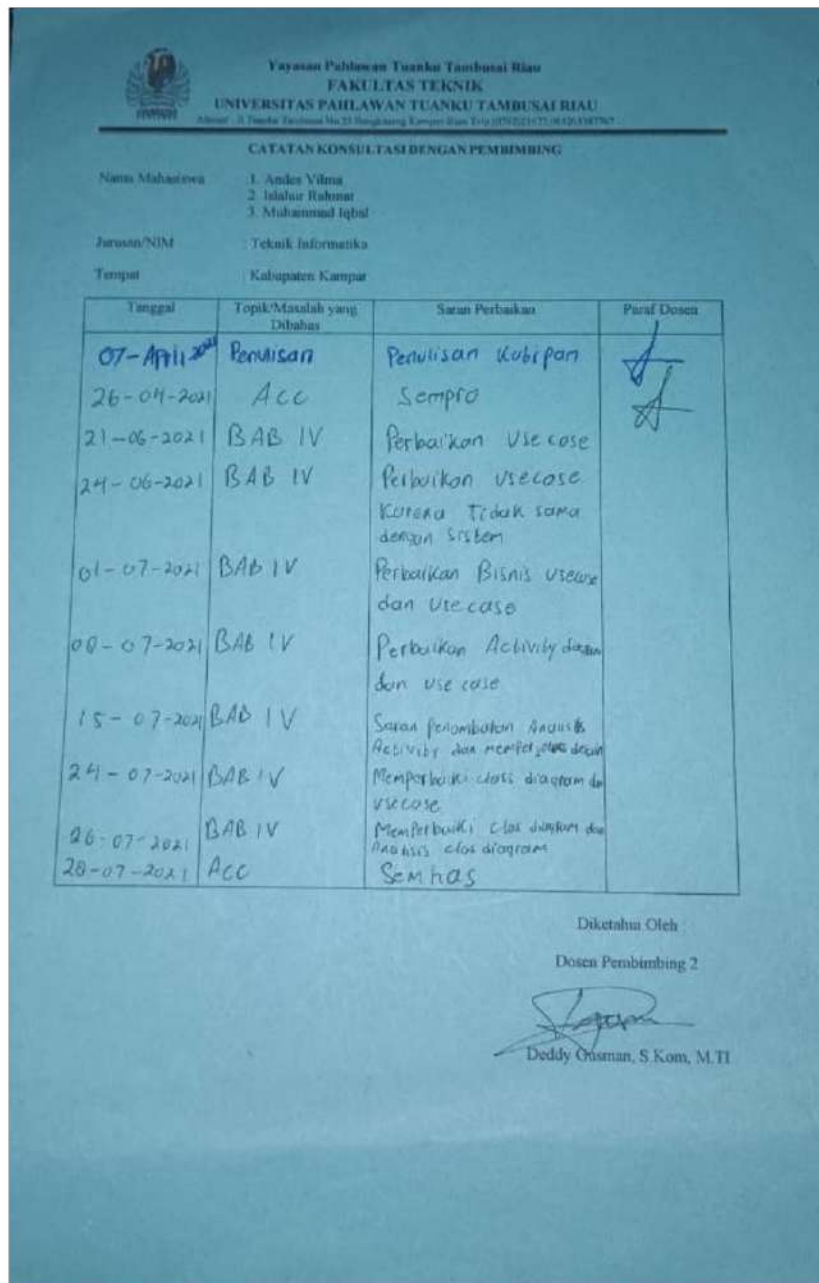 Yayasan Pahlawan Tuanku Tambusai Riau
FAKULTAS TEKNIK
UNIVERSITAS PAHLAWAN TUANKU TAMBUSAI RIAU
CATATAN KONSULTASI DENGAN PEMBIMBING
Nama Mahasiswa : 1. Andes Vilma
2. Islahur Rahmat
3. Muhammad Iqbal
Jurusan/NIM : Teknik Informatika
Tempat : Kabupaten Kampar
Tanggal Topik/Masalah yang Dibahas Saran Perbaikan Paraf Dosen
07-April 2021 Penulisan Penulisan Kutipan
26-04-2021 Acc Sempro
21-06-2021 BAB IV Perbaikan Usecase
24-06-2021 BAB IV Perbaikan Usecase
Karena Tidak sama
dengan Sistem
01-07-2021 BAB IV Perbaikan Bisnis usecase
dan Usecase
08-07-2021 BAB IV Perbaikan Activity
dan use case
15-07-2021 BAB IV Saran Penambahan
Activity dan memperjelas
24-07-2021 BAB IV Memperbaiki class diagram
usecase
26-07-2021 BAB IV Memperbaiki clas diagram dan
Analisis clas diagram
28-07-2021 Acc Semhas
Diketahui Oleh
Dosen Pembimbing 2
Deddy Gusman, S.Kom, M.TI